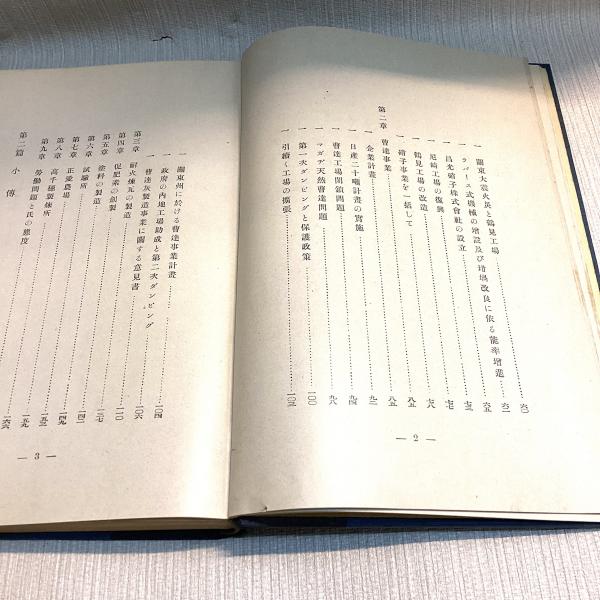 一 關東大震災と鶴見工場……六〇
一 ラバース式機械の増設及び坩堝改良に依る能率增進……六二
一 尼崎工場の復興……六五
一 昌光硝子株式會社の設立……七三
一 鶴見工場の改造……七七
一 硝子事業を一括して……七八
第二章 曹達事業……八五
一 企業計畫……八五
一 日產二十噸計畫の實施……九二
一 曹達工場閉鎖問題……九四
一 マガヂ天然曹達問題……九八
一 第一次ダンピングと保護政策……一〇〇
一 引續く工場の擴張……一〇三
— 2 —
一 關東州に於ける曹達事業計畫……一〇四
一 政府の內地工場助成と第二次ダンピング……一〇六
一 曹達灰製造事業に關する意見書
第三章 耐火煉瓦の製造
第四章 促肥素の創製……一二〇
第五章 塗料の製造……一三七
第六章 試驗所……一四二
第七章 正愛農場……一四九
第八章 高千穗製煉所……一五三
第九章 勞働問題と氏の態度……一五九
第二篇 小傳……一六六
— 3 —